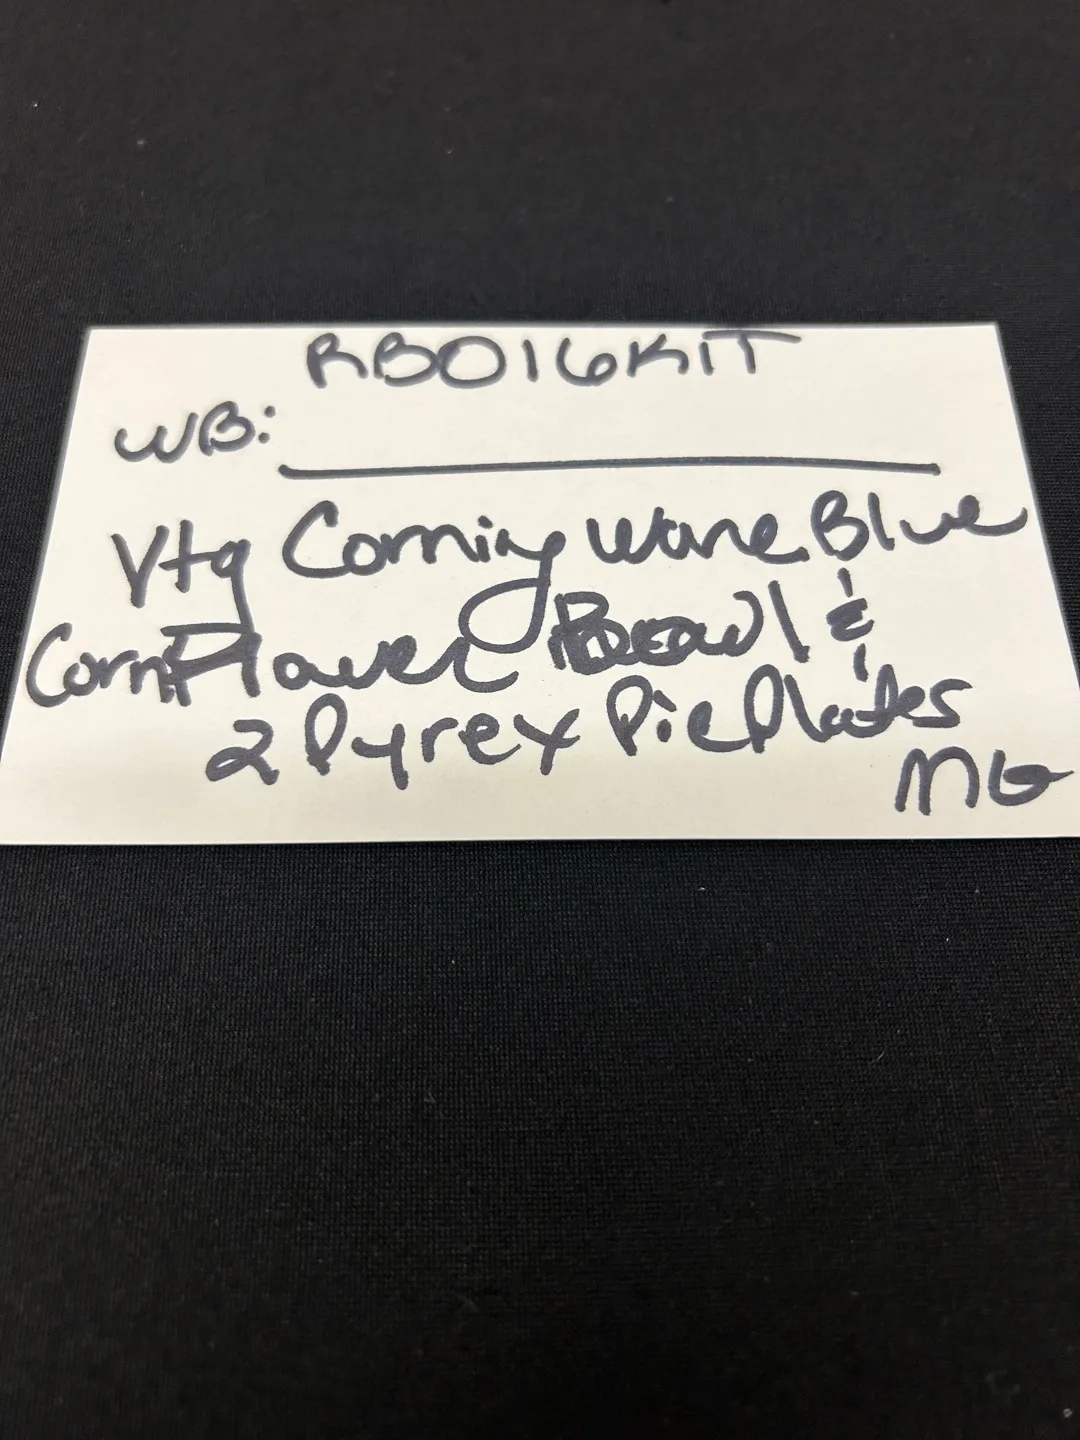 RB016KIT
WB:
Vtg Corning Ware Blue
Cornflower Bowl &
2 Pyrex Pie Plates
MG